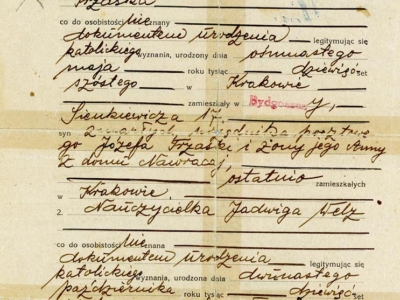 Trzaska
co do osobistości nie znany
dokumentem urodzenia legitymując się
katolickiego wyznania, urodzony dnia osmnastego
maja roku tysiąc dziewięćset
szóstego w Krakowie
zamieszkały w Bydgoszczy,
Sienkiewicza 17.
syn zmarłych urzędnika poztowe
go Józefa Trzaski i żony jego Anny
z domu Nawracaj,
ostatnio zamieszkałych
w Krakowie
2. Nauczycielka Jadwiga Welz
co do osobistości nie znana
dokumentem urodzenia legitymując się
katolickiego wyznania, urodzona dnia dwunastego
października roku tysiąc dziewięćset